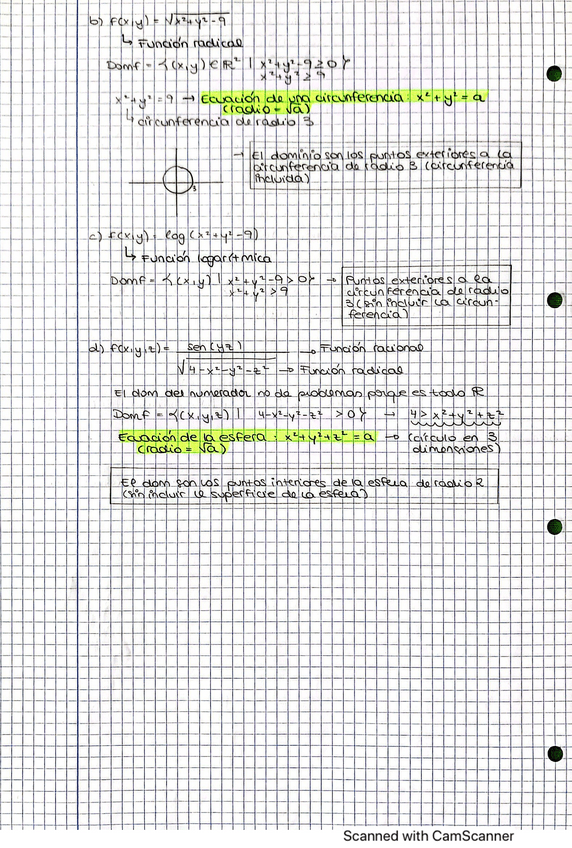 b) f(x,y) = √x²+y²-9
↳ Función radical
Domf = {(x,y) ∈ ℝ² | x²+y²-9 ≥ 0}
x²+y² ≥ 9
x²+y² = 9 → Ecuación de una circunferencia: x²+y² = a
(radio = √a)
↳ circunferencia de radio 3
3
→ El dominio son los puntos exteriores a la
circunferencia de radio 3 (circunferencia
incluida)
c) f(x,y) = log(x²+y²-9)
↳ Función logarítmica
Domf = {(x,y) | x²+y²-9 > 0} →
x²+y² > 9
Puntos exteriores a la
circunferencia de radio
3 (sin incluir la circun-
ferencia)
d) f(x,y,z) = sen(yz) → Función racional
√4-x²-y²-z² → Función radical
El dom del numerador no da problemas porque es todo ℝ
Domf = {(x,y,z) | 4-x²-y²-z² > 0} → 4 > x²+y²+z²
Ecuación de la esfera: x²+y²+z² = a → (círculo en 3
(radio = √a) dimensiones)
El dom son los puntos interiores de la esfera de radio 2
(sin incluir la superficie de la esfera)
Scanned with CamScanner